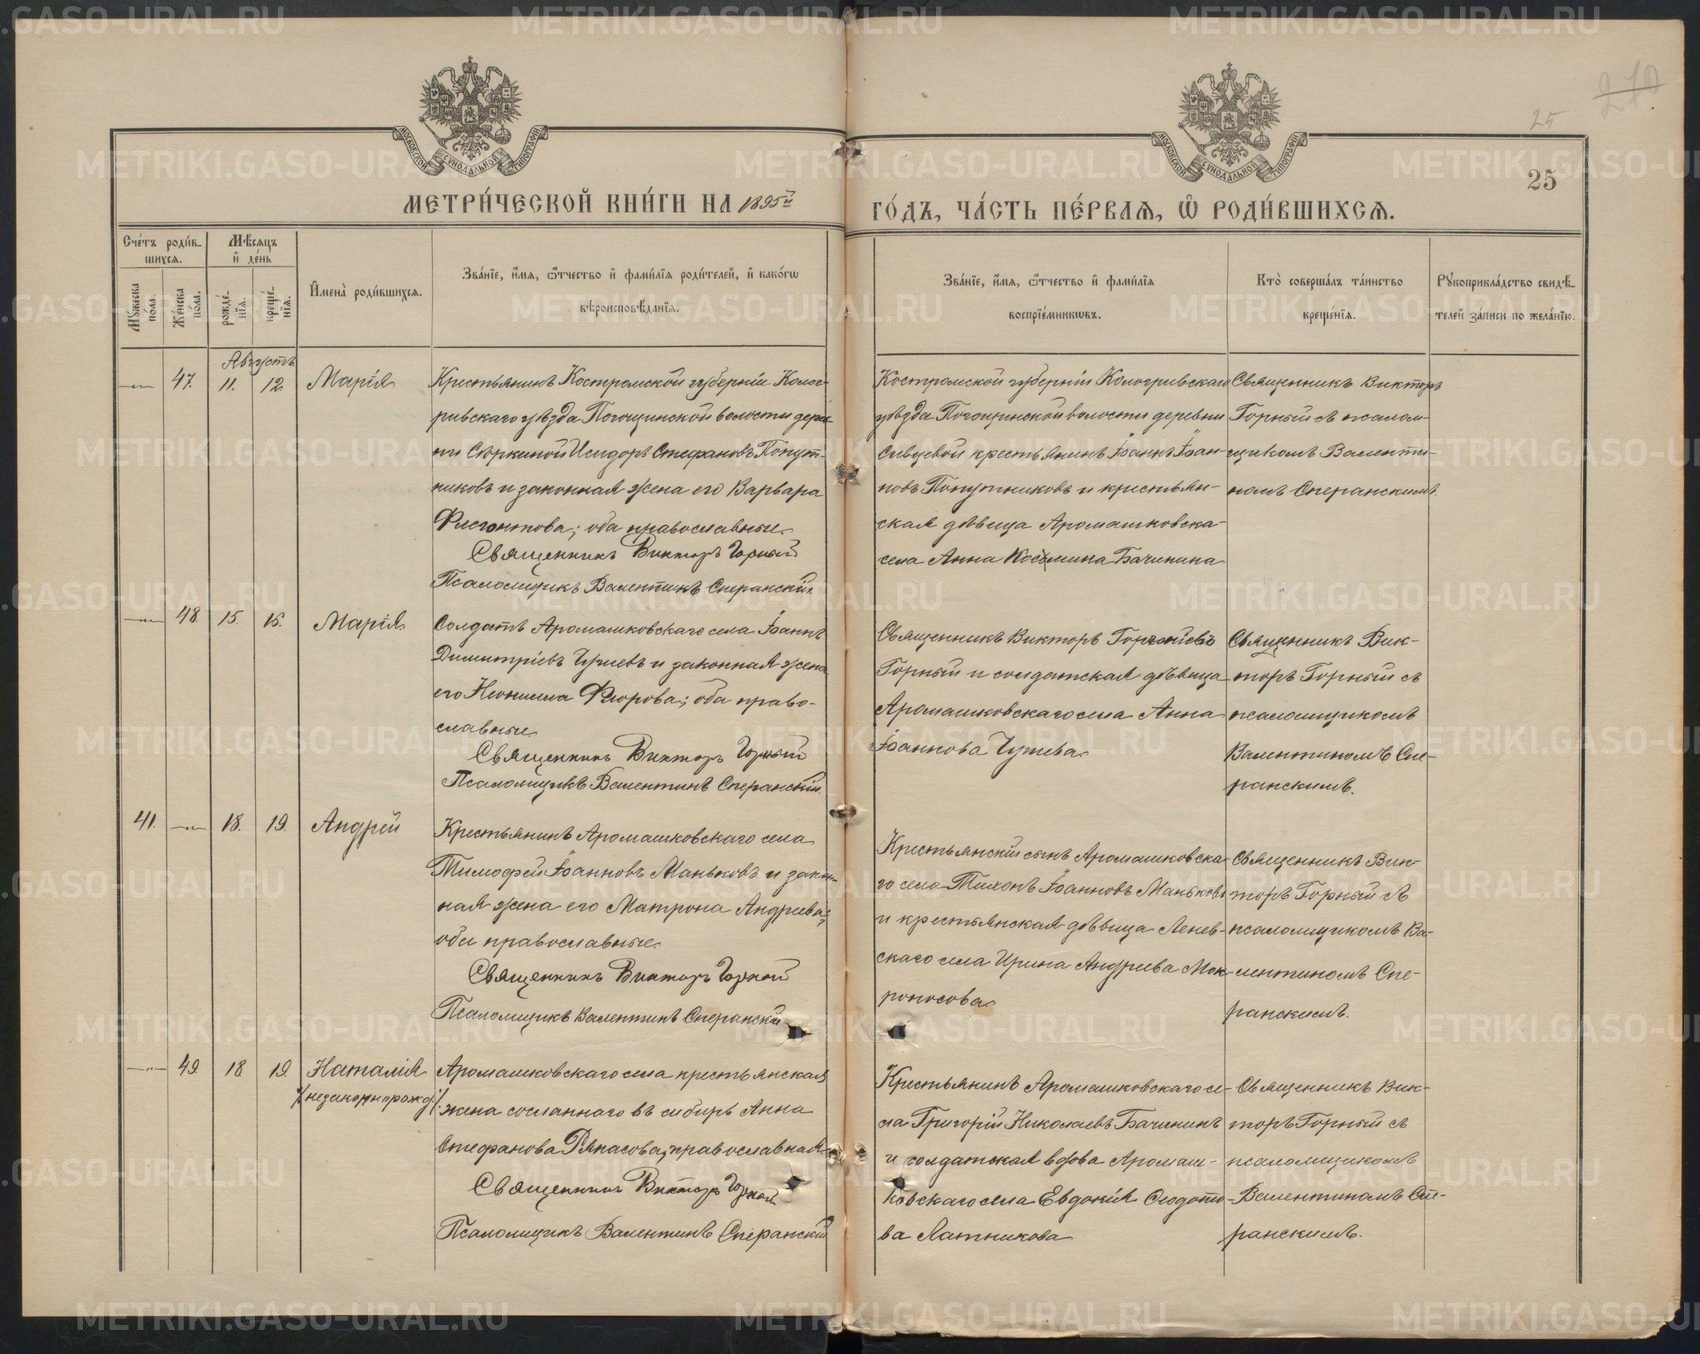 25
270
25
МЕТРИ́ЧЕСКОЙ КНИ́ГИ НА 1895й
ГО́ДЪ, ЧА́СТЬ ПЕ́РВАЯ, Ѡ РОДИ́ВШИХСЯ.
Сче́тъ роди́в-
шихся.
Мѣ́сяцъ
и҆ де́нь
Му́жеска по́ла.
Же́нска по́ла.
рожде́нїя.
креще́нїя.
И҆мена̀ роди́вшихся.
Зва́нїе, и҆́мя, ѻ҆́тчество и҆ фами́лїя роди́телей, и҆ како́гѡ
вѣроисповѣ́данїя.
Зва́нїе, и҆́мя, ѻ҆́тчество и҆ фами́лїя
воспрїе́мникѡвъ.
Кто̀ соверша́лъ та́инство
креще́нїя.
Рꙋкоприкла́дство свидѣ́-
телей за́писи по жела́нїю.
Августъ
47. 11. 12. Марія
Крестьянинъ Костромской губерніи Колог-
ривскаго уѣзда Потощинской волости дерев-
ни Сюркиной Исидоръ Стефановъ Попут-
никовъ и законная жена его Варвара
Флегонтова; оба православные.
Священникъ Викторъ Горный
Псаломщикъ Валентинъ Сперанскій
Костромской губерніи Кологривскаго
уѣзда Потощинской волости деревни
Сивцевой крестьянинъ Іоаннъ Іоан-
новъ Попутниковъ и крестьян-
ская дѣвица Аромашковска-
села Анна Космина Бачинина
Священникъ Викторъ
Горный съ псалом-
щикомъ Валенти-
номъ Сперанскимъ.
48. 15. 16. Марія
Солдатъ Аромашковскаго села Іоаннъ
Димитріевъ Чужевъ и законная жена
его Неонилла Флорова; оба право-
славные.
Священникъ Викторъ Горный
Псаломщикъ Валентинъ Сперанскій
Священникъ Викторъ Горгоніевъ
Горный и солдатская дѣвица
Аромашковскаго села Анна
Іоаннова Чужева
Священникъ Вик-
торъ Горный съ
псаломщикомъ
Валентиномъ Спе-
ранскимъ.
41. 18. 19. Андрей
Крестьянинъ Аромашковскаго села
Тимофей Іоанновъ Маньковъ и закон-
ная жена его Матрона Андреева;
оба православные.
Священникъ Викторъ Горный
Псаломщикъ Валентинъ Сперанскій
Крестьянскій сынъ Аромашковска-
го села Тихонъ Іоанновъ Маньковъ
и крестьянская дѣвица Ленев-
скаго села Ирина Андреева Мок-
роносова
Священникъ Вик-
торъ Горный съ
псаломщикомъ Ва-
лентиномъ Спе-
ранскимъ.
49. 18. 19. Наталія
/незаконнорожд./
Аромашковскаго села крестьянская
жена сосланнаго въ сибирь Анна
Стефанова Ряпасова, православная
Священникъ Викторъ Горный
Псаломщикъ Валентинъ Сперанскій
Крестьянинъ Аромашковскаго се-
ла Григорій Николаевъ Бачининъ
и солдатская вдова Аромаш-
ковскаго села Евдокія Ѳедото-
ва Латникова
Священникъ Вик-
торъ Горный съ
псаломщикомъ
Валентиномъ Спе-
ранскимъ.
METRIKI.GASO-URAL.RU